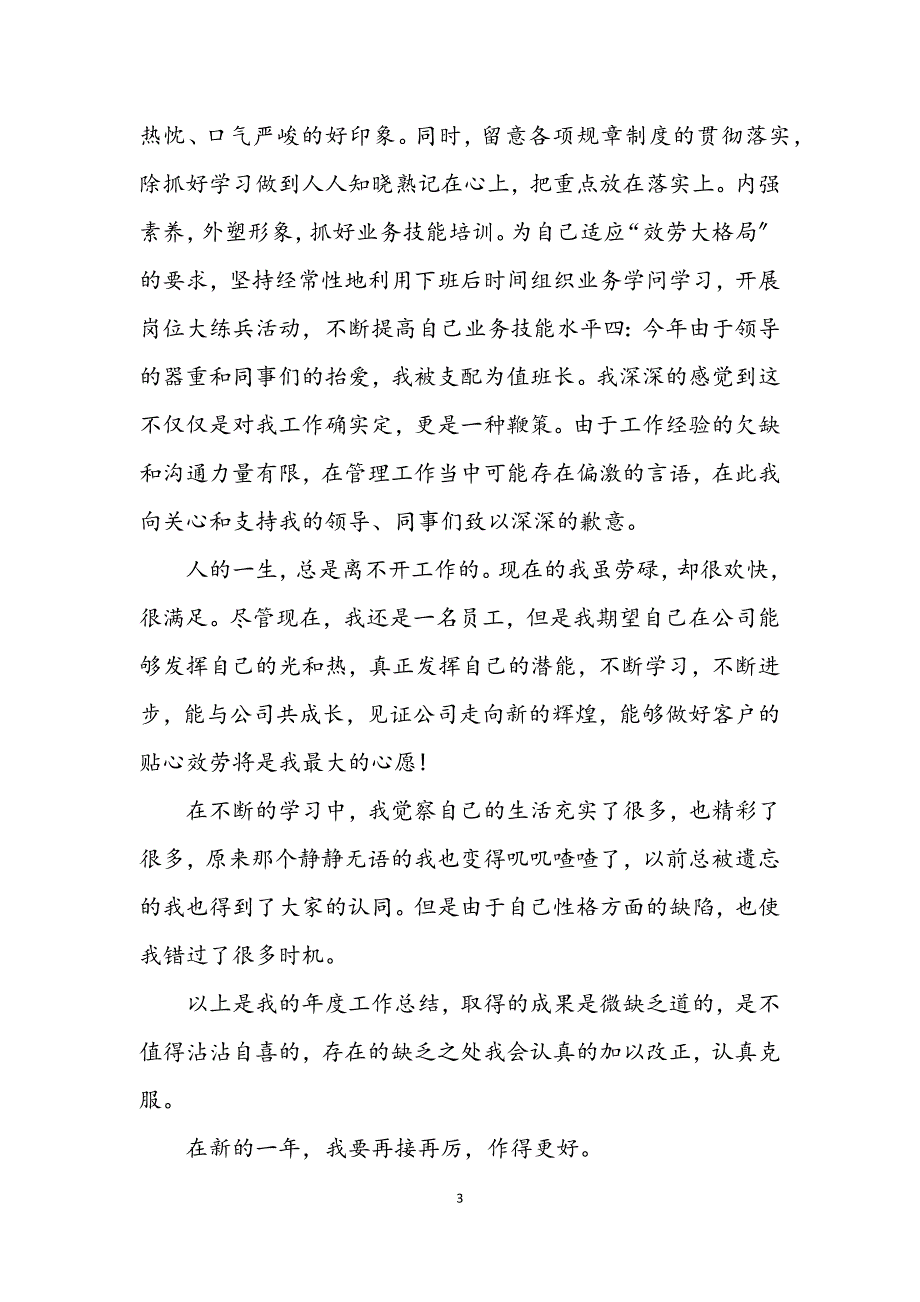 热忱、口气严峻的好印象。同时，留意各项规章制度的贯彻落实，
除抓好学习做到人人知晓熟记在心上，把重点放在落实上。内强
素养，外塑形象，抓好业务技能培训。为自己适应“效劳大格局〞
的要求，坚持经常性地利用下班后时间组织业务学问学习，开展
岗位大练兵活动，不断提高自己业务技能水平四：今年由于领导
的器重和同事们的抬爱，我被支配为值班长。我深深的感觉到这
不仅仅是对我工作确实定，更是一种鞭策。由于工作经验的欠缺
和沟通力量有限，在管理工作当中可能存在偏激的言语，在此我
向关心和支持我的领导、同事们致以深深的歉意。
人的一生，总是离不开工作的。现在的我虽劳碌，却很欢快，
很满足。尽管现在，我还是一名员工，但是我期望自己在公司能
够发挥自己的光和热，真正发挥自己的潜能，不断学习，不断进
步，能与公司共成长，见证公司走向新的辉煌，能够做好客户的
贴心效劳将是我最大的心愿！
在不断的学习中，我觉察自己的生活充实了很多，也精彩了
很多，原来那个静静无语的我也变得叽叽喳喳了，以前总被遗忘
的我也得到了大家的认同。但是由于自己性格方面的缺陷，也使
我错过了很多时机。
以上是我的年度工作总结，取得的成果是微缺乏道的，是不
值得沾沾自喜的，存在的缺乏之处我会认真的加以改正，认真克
服。
在新的一年，我要再接再厉，作得更好。
3